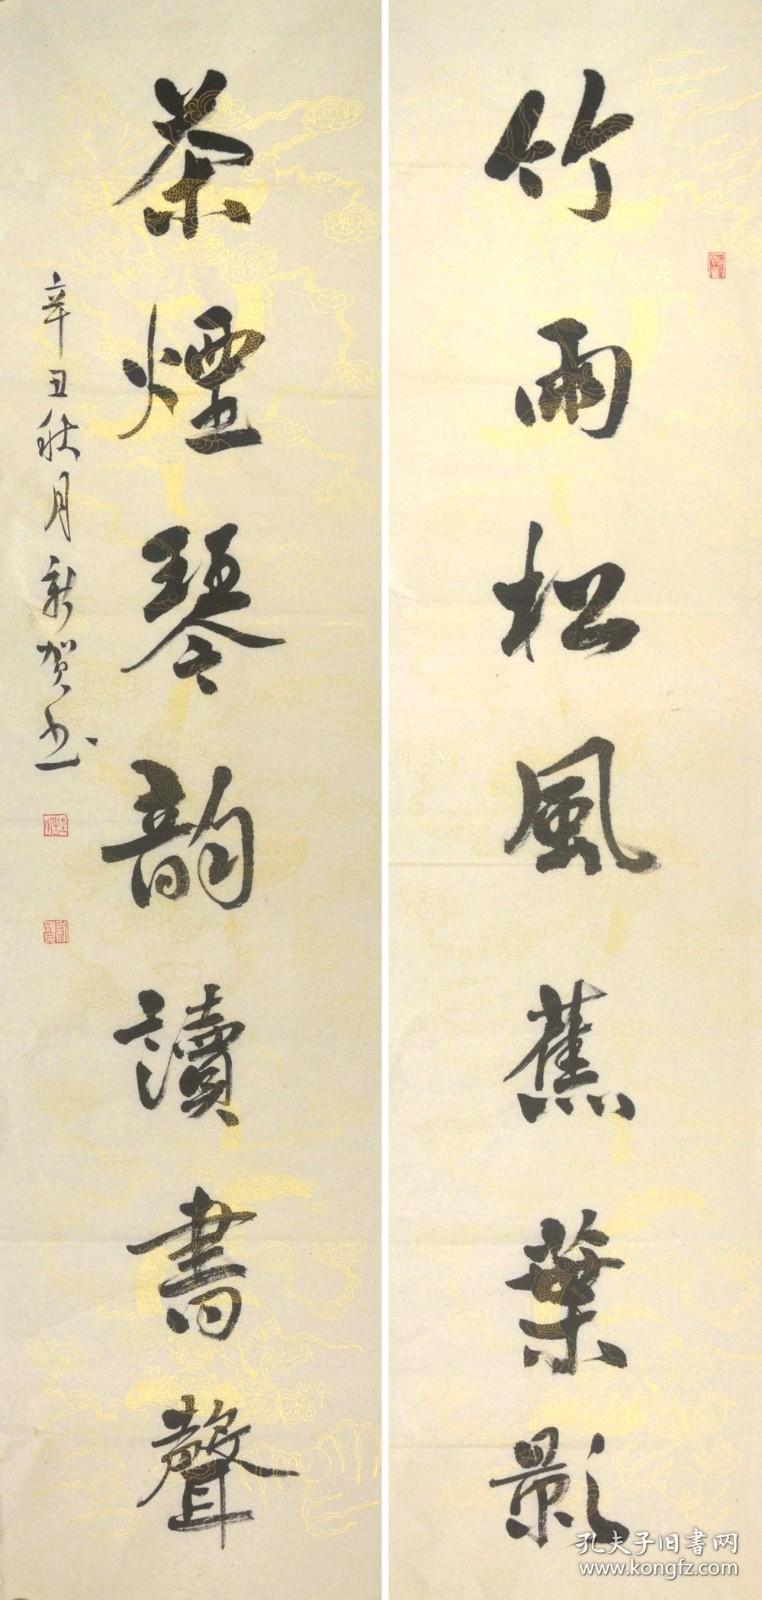 竹雨松風蕉葉影
茶煙琴韵讀書聲
辛丑秋月新贺书
孔夫子旧书网
www.kongfz.com